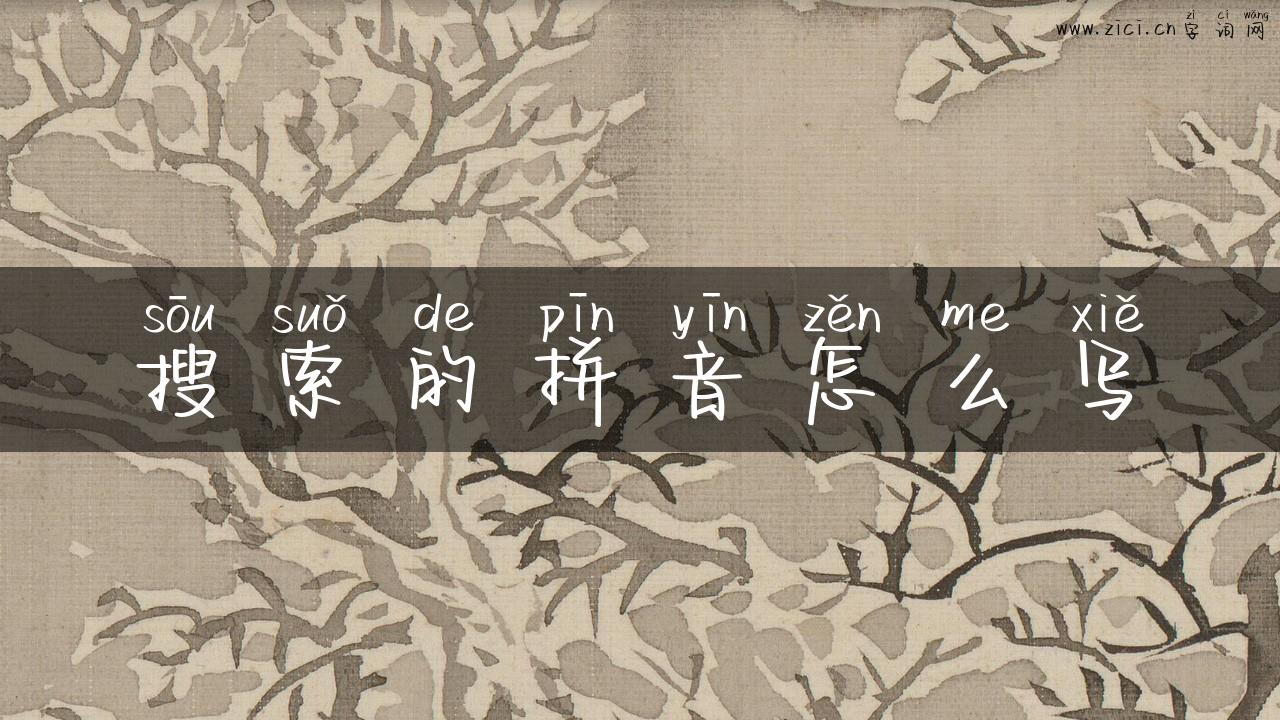 www.zici.cn字词网
zì cí wǎng
sōu suǒ de pīn yīn zěn me xiě
搜索的拼音怎么写